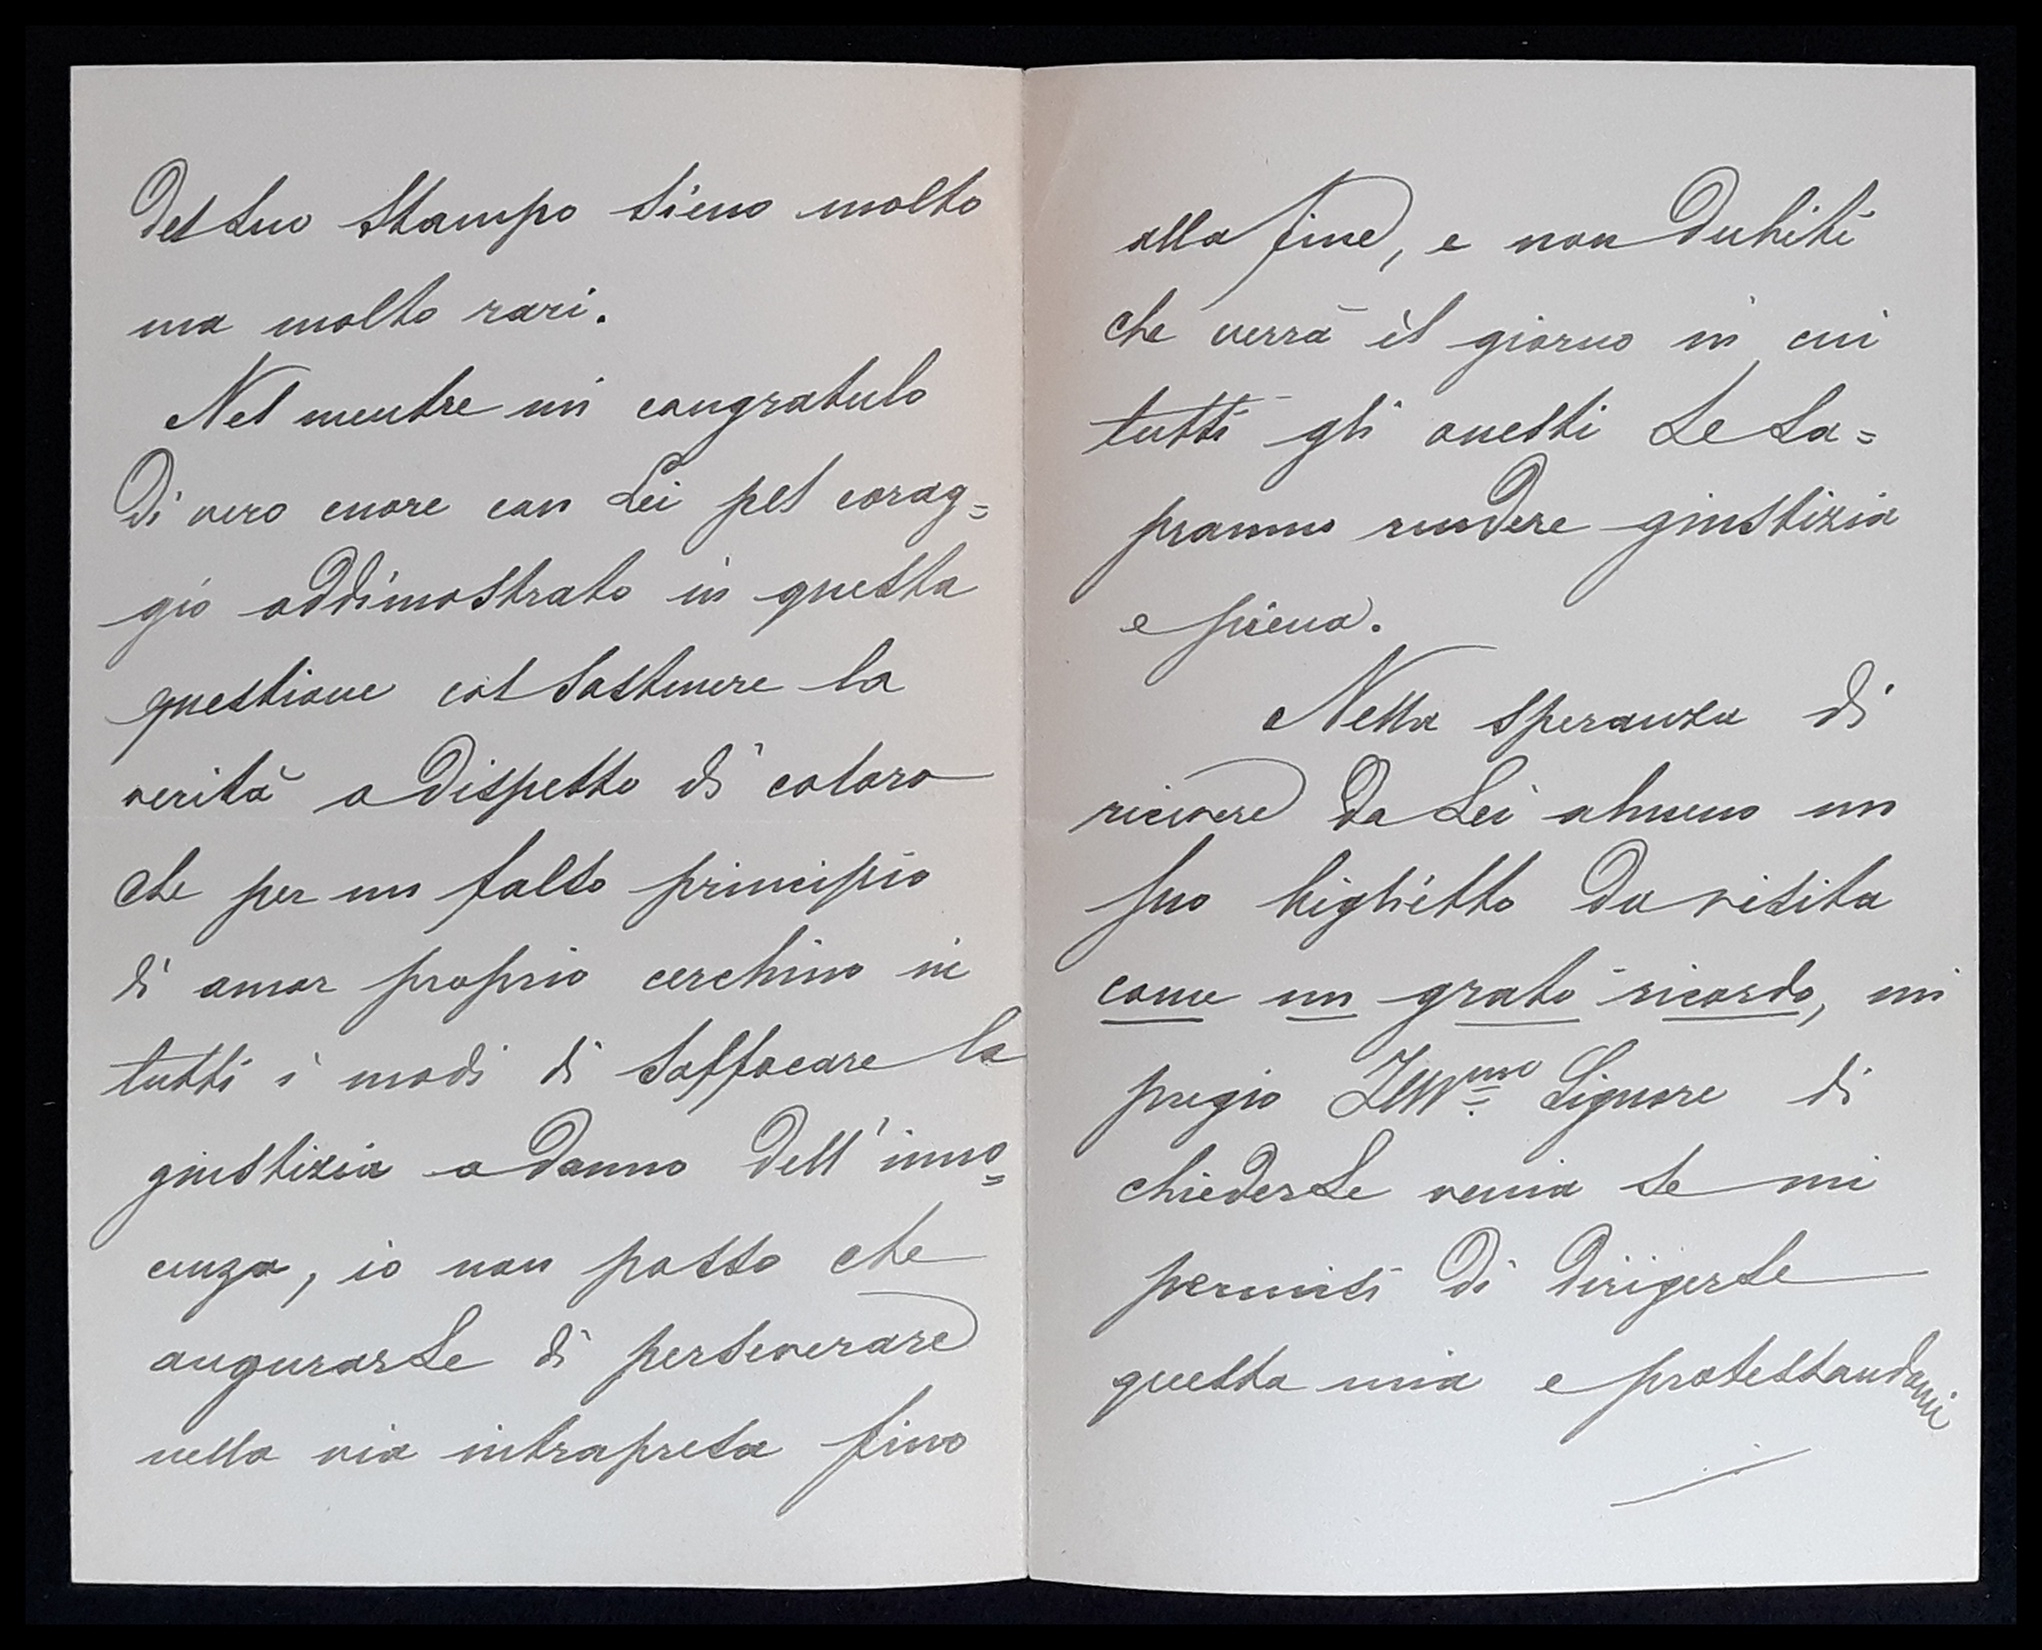 del Suo Stampo Sieno molto
ma molto rari.
Nel mentre mi congratulo
di vero cuore con Lei pel corag=
gio addimostrato in questa
questione col Sostenere la
verità a dispetto di coloro
che per un falso principio
di amor proprio cerchino in
tutti i modi di Soffocare la
giustizia a danno dell'inno=
cenza, io non posso che
augurarLe di perseverare
nella via intrapresa fino
alla fine, e non dubiti
che verrà il giorno in cui
tutti gli onesti Le Sa=
pranno rendere giustizia
e piena.
Nella Speranza di
ricevere da Lei almeno un
Suo biglietto da visita
come un grato ricordo, mi
pregio Illmo Signore di
chiederLe venia Se mi
permisi di dirigerLe
questa mia e protestandomi